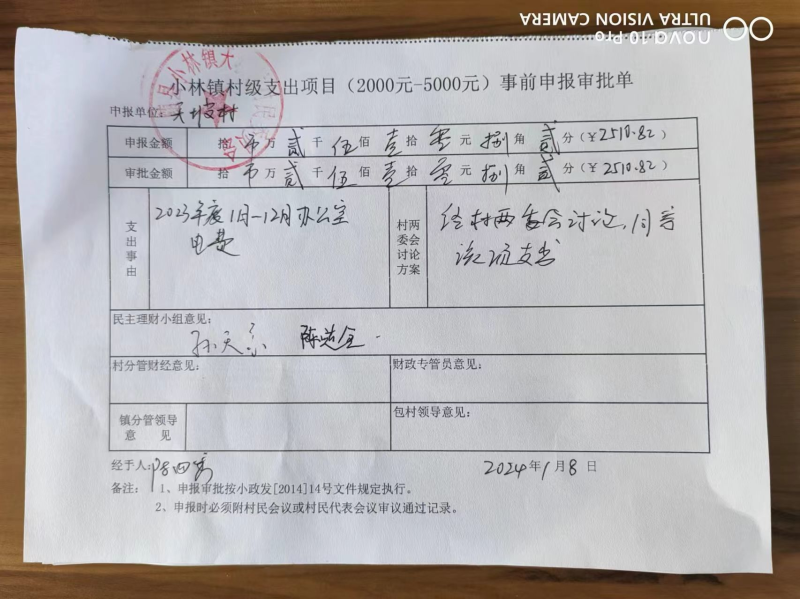 nova 10 Pro
ULTRA VISION CAMERA
小林镇村级支出项目（2000元-5000元）事前申报审批单
申报单位：天坡村
申报金额 拾 万 贰 千 伍 佰 壹 拾 零 元 捌 角 贰 分（￥2510.82）
审批金额 拾 万 贰 千 伍 佰 壹 拾 零 元 捌 角 贰 分（￥2510.82）
支出事由
2023年度1月-12月办公室
电费
村两委会讨论方案
经村两委会讨论，同意
该项支出
民主理财小组意见：
孙天 陈 全
村分管财经意见：
财政专管员意见：
镇分管领导意见
包村领导意见：
经手人： 2024年1月8日
备注： 1、申报审批按小政发[2014]14号文件规定执行。
2、申报时必须附村民会议或村民代表会议审议通过记录。